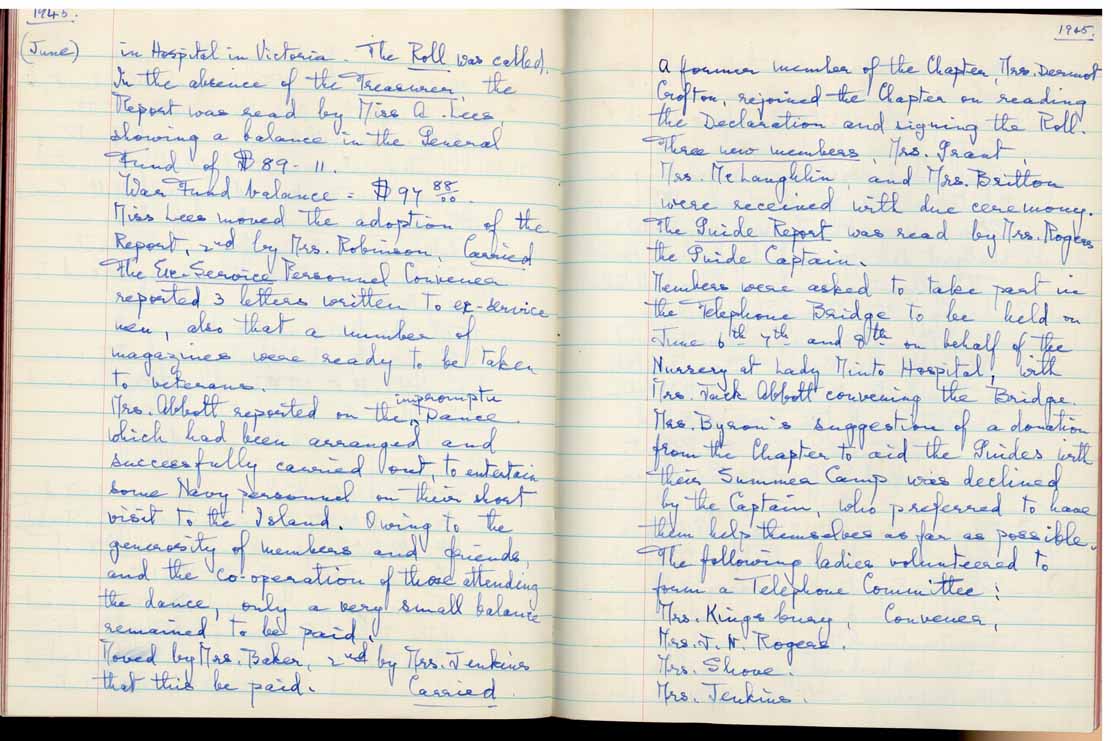 1945.
(June)
in Hospital in Victoria. The Roll was called.
In the absence of the Treasurer, the
Report was read by Miss A. Lees,
showing a balance in the General
Fund of $89-11.
War Fund balance = $97 88/00.
Miss Lees moved the adoption of the
Report, 2nd by Mrs. Robinson, Carried
The Ex-Service Personnel Convener
reported 3 letters written to ex-service
men, also that a number of
magazines were ready to be taken
to veterans.
impromptu
Mrs. Abbott reported on the Dance
which had been arranged and
successfully carried out, to entertain
some Navy personnel on their short
visit to the Island. Owing to the
generosity of members and friends,
and the co-operation of those attending
the dance, only a very small balance
remained to be paid.
Moved by Mrs. Baker, 2nd by Mrs. Jenkins
that this be paid. Carried.
1945.
A former member of the Chapter, Mrs. Dermot
Crofton, rejoined the Chapter on reading
the Declaration and signing the Roll.
Three new members, Mrs. Grant,
Mrs. McLaughlin, and Mrs. Britton
were received with due ceremony.
The Guide Report was read by Mrs. Rogers
the Guide Captain.
Members were asked to take part in
the Telephone Bridge to be held on
June 6th 7th and 8th on behalf of the
Nursery at Lady Minto Hospital, with
Mrs. Jack Abbott convening the Bridge.
Mrs. Byron's suggestion of a donation
from the Chapter to aid the Guides with
their Summer Camp was declined
by the Captain, who preferred to have
them help themselves as far as possible.
The following ladies volunteered to
form a Telephone Committee:
Mrs. Kingsbury, Convener,
Mrs. J. N. Rogers.
Mrs. Shove.
Mrs. Jenkins.